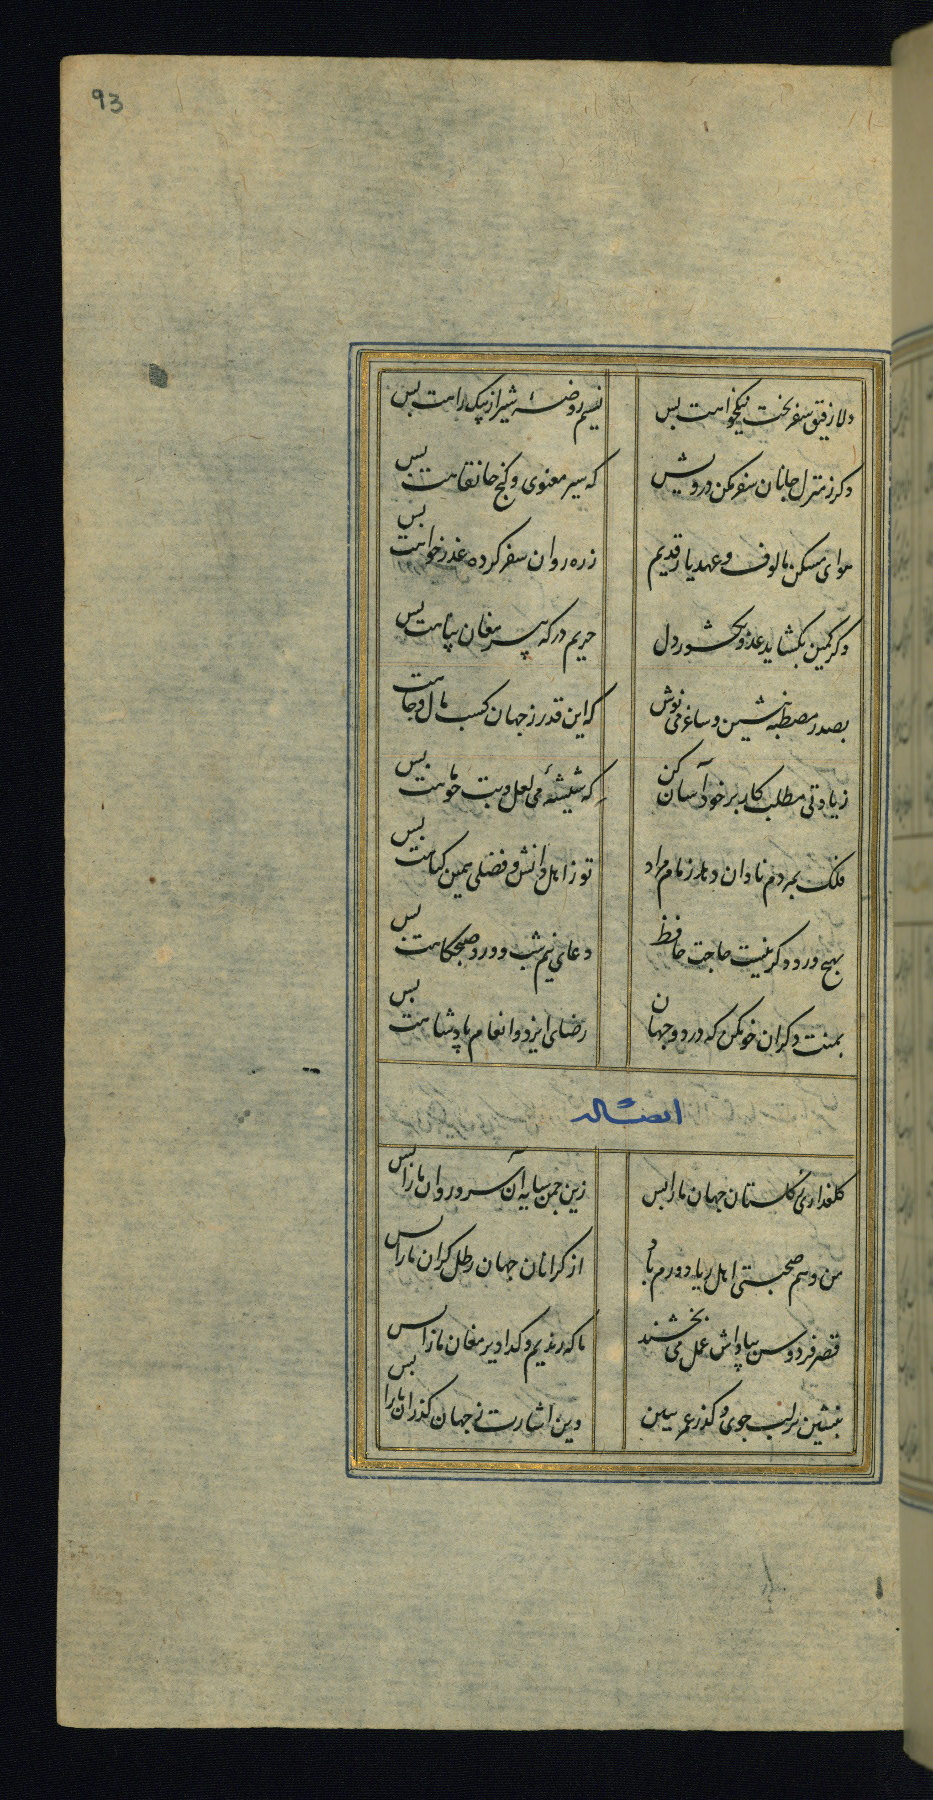 93
دلا رفیق سفر بخت نیکخواهت بس نسیم روضهٔ شیراز پیک راهت بس
دکر ز منزل جانان سفر مکن درویش که سیر معنوی و کنج خانقاهت بس
هوای مسکن مالوف و عهد یار قدیم ز ره روان سفر کرده عذر خواهت بس
وکر کمین بکشاید غمی ز کشور دل حریم درکه پیر مغان پناهت بس
بصدر مصطبه بنشین و ساغر می نوش که این قدر ز جهان کسب مال و جاهت
زیادتی مطلب کار بر خود آسان کن که شیشهٔ می لعل و بت چو ماهت بس
فلک بمردم نادان دهد زمام مراد تو ز اهل دانش و فضلی همین کناهت بس
بهیچ ورد دکر نیست حاجت حافظ دعای نیم شب و ورد صبحکاهت بس
بمنت دکران خو مکن که در دو جهان رضای ایزد و انعام پادشاهت بس
ایضاله
کلعذاری ز کلستان جهان ما را بس زین چمن سایه آن سرو روان ما را بس
من و هم صحبتی اهل ریا دورم باد از کرانان جهان رطل کران ما را بس
قصر فردوس بپاداش عمل می بخشند ما که رندیم و کدا دیر مغان ما را بس
بنشین بر لب جوی و کذر عمر ببین وین اشارت ز جهان کذران ما را بس